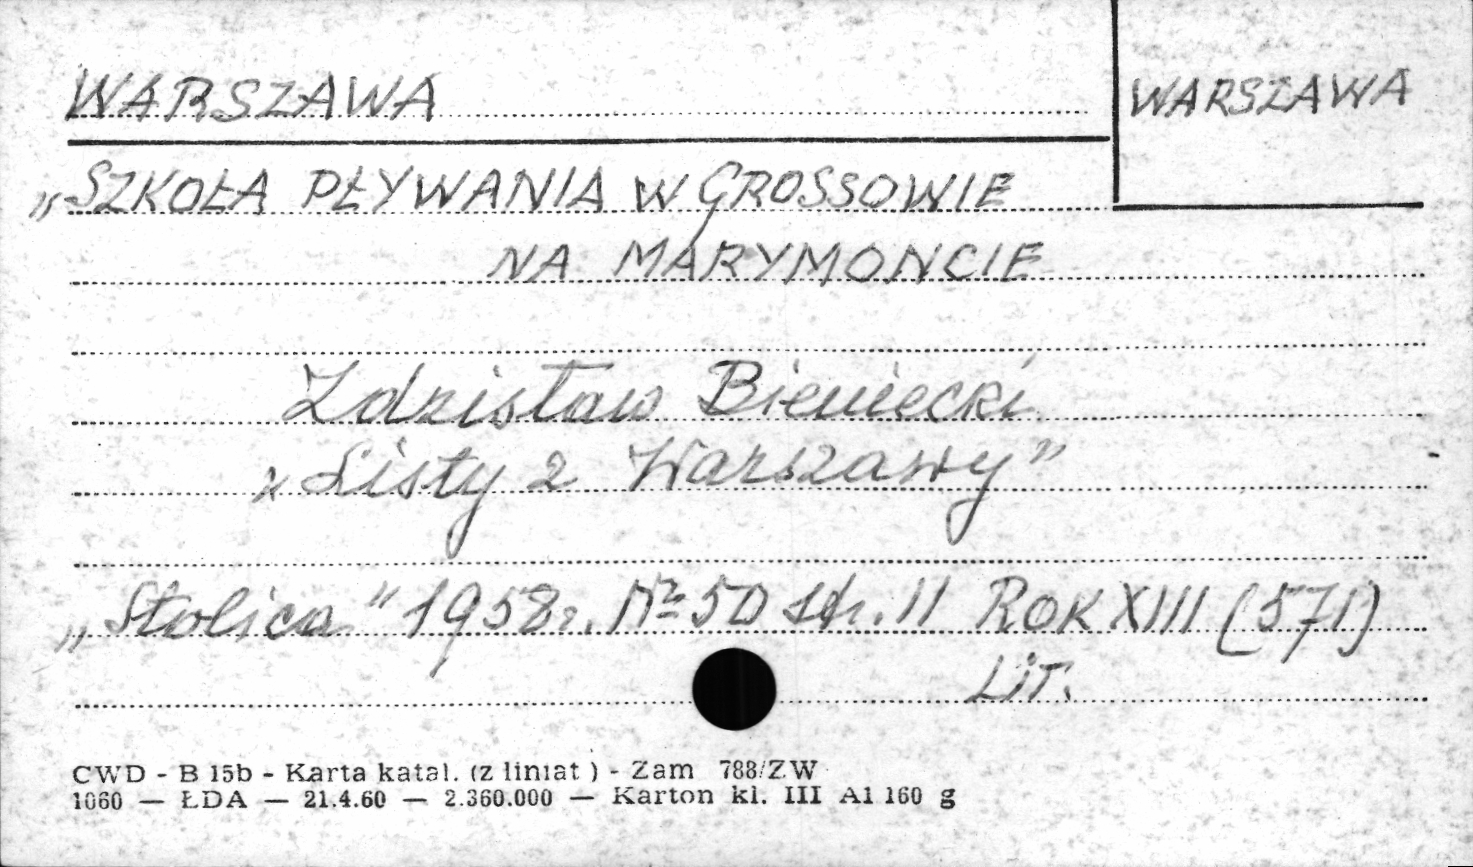 WARSZAWA
WARSZAWA
„SZKOŁA PŁYWANIA W GROSSOWIE
NA MARYMONCIE
Zdzisław Bieniecki
z Listy z Warszawy”
„Stolica” 1958r. Nr 50 str. 11 ROK XIII (571)
Lit.
CWD - B 15b - Karta katal. (z liniat ) - Zam 788/ZW
1060 — ŁDA — 21.4.60 — 2.360.000 — Karton kl. III A1 160 g